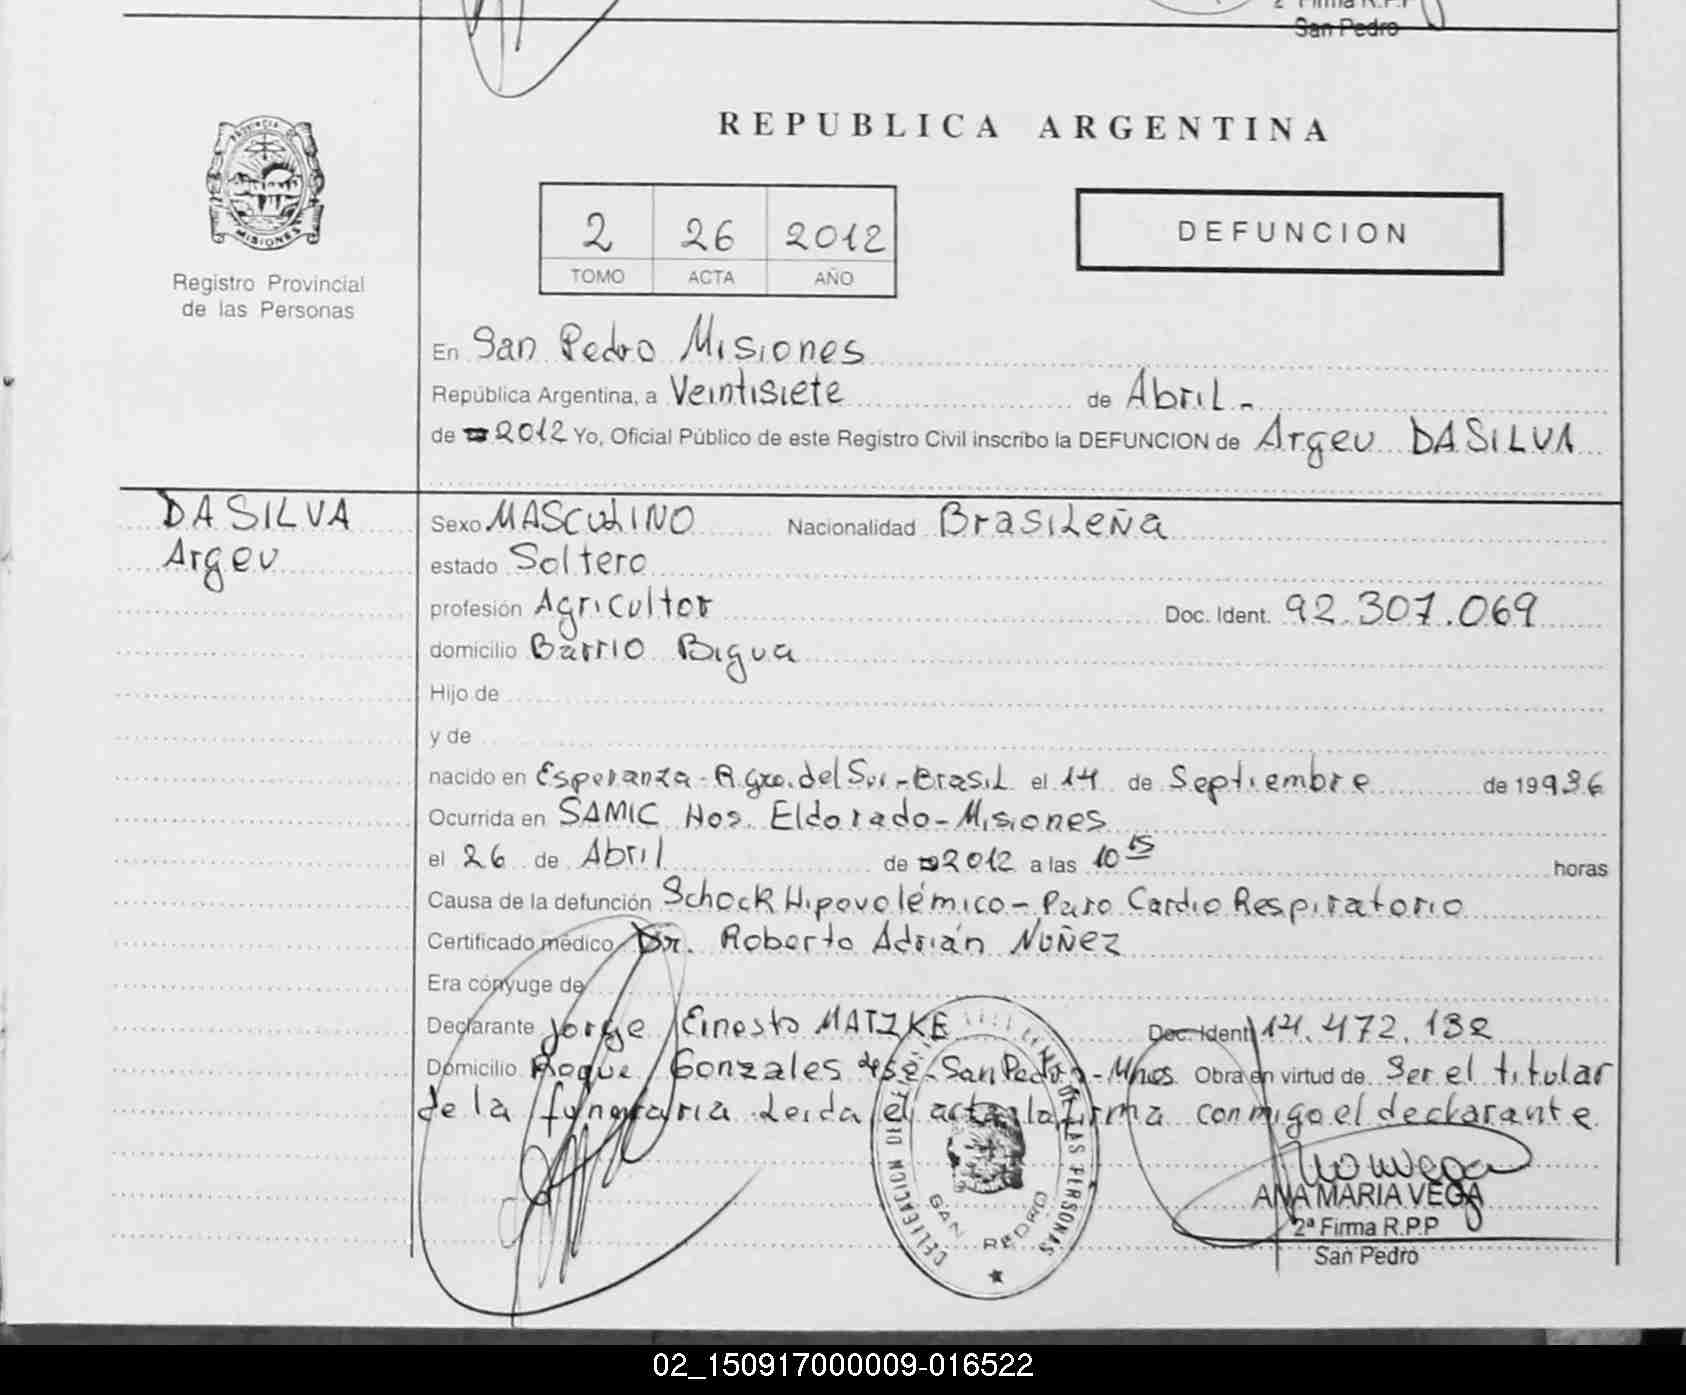 2ª Firma R.P.P
San Pedro
PROVINCIA DE
MISIONES
Registro Provincial
de las Personas
REPUBLICA ARGENTINA
2 26 2012
TOMO ACTA AÑO
DEFUNCION
En San Pedro Misiones
República Argentina, a Veintisiete de Abril -
de 2012 Yo, Oficial Público de este Registro Civil inscribo la DEFUNCION de Argeu DASILVA
DASILVA
Argeu
Sexo MASCULINO Nacionalidad Brasileña
estado Soltero
profesión Agricultor Doc. Ident. 92.307.069
domicilio Barrio Bigua
Hijo de
y de
nacido en Esperanza - R. Gre. del Sur - Brasil el 14 de Septiembre de 19936
Ocurrida en SAMIC Hos. Eldorado - Misiones
el 26 de Abril de 2012 a las 10 15 horas
Causa de la defunción Schock Hipovolémico - Paro Cardio Respiratorio
Certificado médico Dr. Roberto Adrián Nuñez
Era cónyuge de
Declarante Jorge Ernesto MATZKE Doc. Ident. 14.472.132
Domicilio Roque Gonzales - San Pedro - Mnes Obra en virtud de Ser el titular
de la funeraria Leida el acta la firma conmigo el declarante
DELEGACION DE LAS PERSONAS
SAN PEDRO
ANA MARIA VEGA
2ª Firma R.P.P
San Pedro
02_150917000009-016522